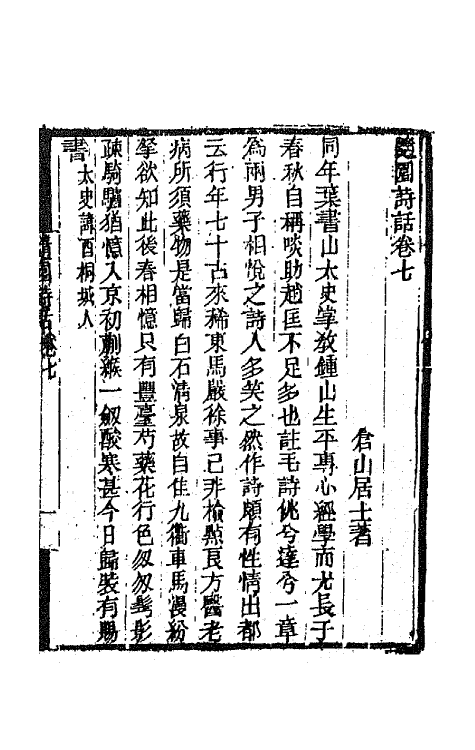 隨園詩話卷七
倉山居士著
同年葉書山太史掌教鍾山生平專心經學而尤長于
春秋自稱啖助趙匡不足多也註毛詩佻兮達兮一章
為兩男子相悅之詩人多笑之然作詩頗有性情出都
云行年七十古來稀東馬嚴徐事已非檢點良方醫老
病所須藥物是當歸白石清泉故自佳九衢車馬漫紛
拏欲知此後春相憶只有豐臺芍藥花行色匆匆鬓影
疎騎驢猶憶入京初蒯緱一劔酸寒甚今日歸裝有賜
書太史諱酉桐城人
隨園詩話卷七
一